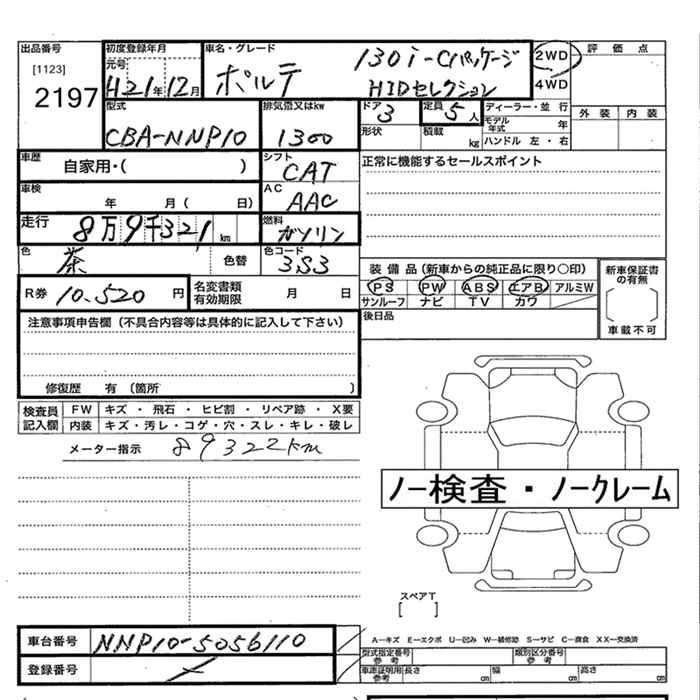 出品番号
[1123]
2197
初度登録年月
元号
H21年12月
車名・グレード
ポルテ
130i-Cパッケージ
HIDセレクション
2WD
4WD
評価点
外装 内装
型式
CBA-NNP10
排気量又はkw
1300
ドア
3
形状
定員
5人
積載
kg
ディーラー・並行
モデル年式 年
ハンドル 左・右
車歴
自家用・( )
シフト
CAT
車検
年 月( 日)
AC
AAC
走行
8万9千321km
燃料
ガソリン
色
茶
色替
色コード
3S3
R券 10,520円
名変書類有効期限 月 日
正常に機能するセールスポイント
装備品(新車からの純正品に限り○印)
PS PW ABS エアB アルミW
サンルーフ ナビ TV カワ
後日品
新車保証書の有無
車載不可
注意事項申告欄(不具合内容等は具体的に記入して下さい)
修復歴 有(箇所 )
検査員記入欄
FW キズ・飛石・ヒビ割・リペア跡・X要
内装 キズ・汚レ・コゲ・穴・スレ・キレ・破レ
メーター指示 89322km
ノー検査・ノークレーム
スペアT
[ ]
車台番号 NNP10-5056110
登録番号
A−キズ E−エクボ U−凹み W−補修跡 S−サビ C−腐食 XX−交換済
型式指定番号 参考
類別区分番号 参考
車庫証明用 参考 長さ cm 幅 cm 高さ cm